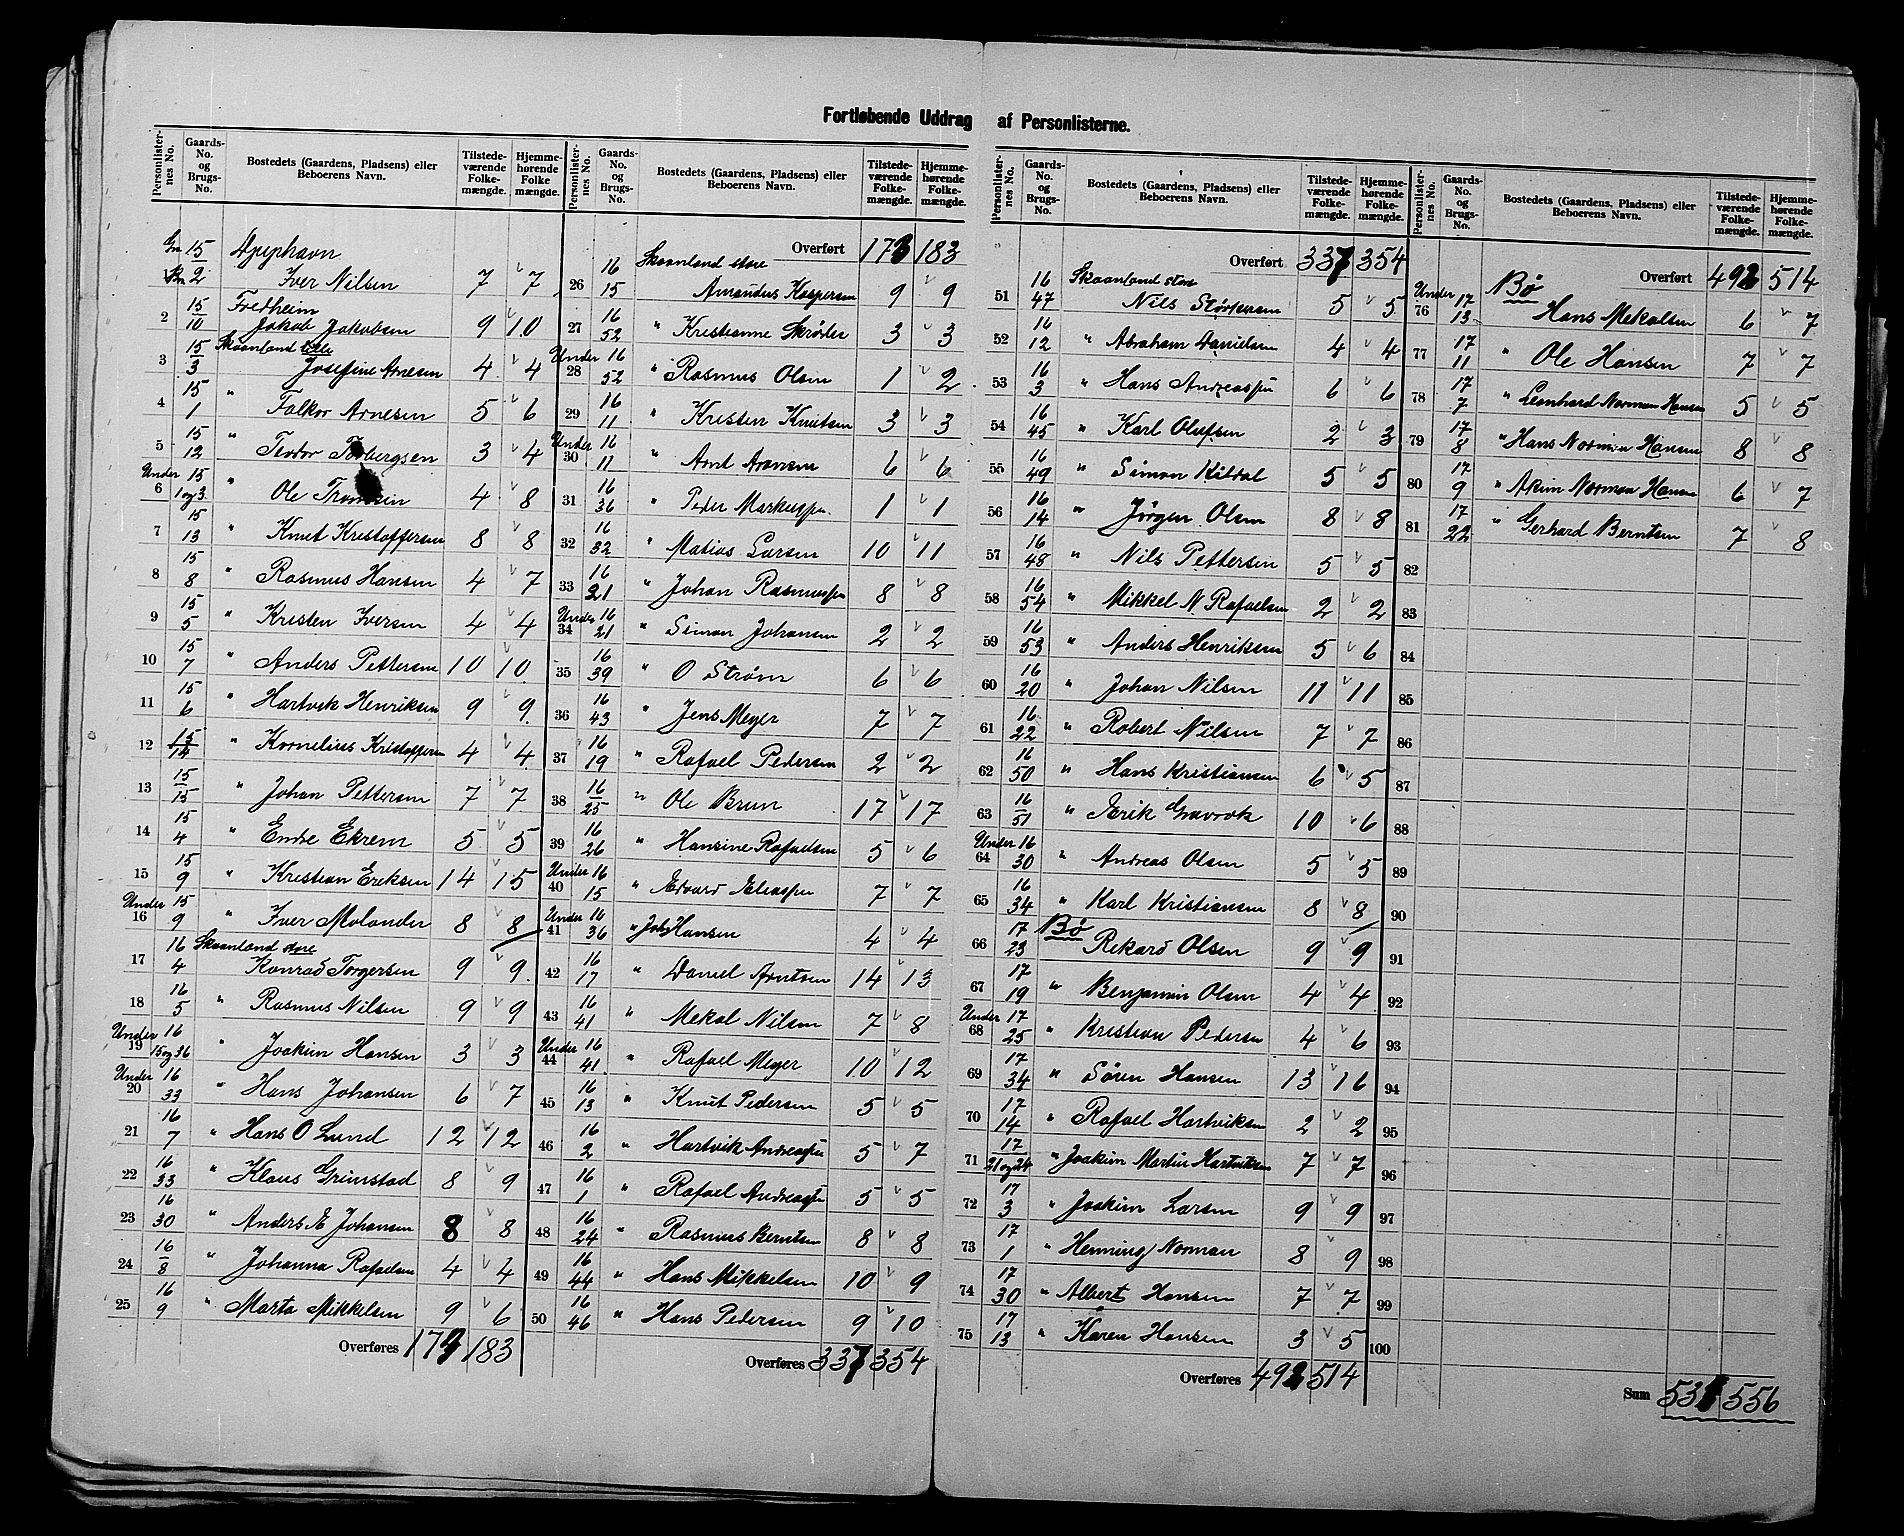 Fortløbende Uddrag af Personlisterne.
Personlister-nes No. Gaards-No. og Brugs-No. Bostedets (Gaardens, Pladsens) eller Beboerens Navn. Tilstede-værende Folke-mængde. Hjemme-hørende Folke-mængde.
Gn 15 Djuphavn
Bn 2 Iver Nilsen 7 7
2 15/10 Fredheim
Jakob Jakobsen 9 10
3 15/3 Skaanland lille
Josefine Arnesen 4 4
4 15/1 " Falkor Arnesen 5 6
5 15/12 " Teodor Torbergsen 3 4
Under 6 15/1 og 3 " Ole 4 8
7 15/13 " Knut Kristoffersen 8 8
8 15/8 " Rasmus Hansen 4 7
9 15/5 " Kristen Iversen 4 4
10 15/7 " Anders Pettersen 10 10
11 15/6 " Hartvik Henriksen 9 9
12 15/14 " Kornelius Kristoffersen 4 4
13 15/15 " Johan Pettersen 7 7
14 15/4 " Endre Ekrem 5 5
15 15/9 " Kristian Ereksen 14 15
Under 16 15/9 " Iver Molander 8 8
17 16/4 Skaanland store
Konrad Torgersen 9 9
18 16/5 " Rasmus Nilsen 9 9
Under 19 16/15 og 36 " Joakim Hansen 3 3
Under 20 16/33 " Hans Johansen 6 7
21 16/7 " Hans O Lund 12 12
22 16/33 " Klaus Grimstad 8 9
23 16/30 " Anders E Johansen 8 8
24 16/8 " Johanna Rafaelsen 4 4
25 16/9 " Marta Mikkelsen 9 6
Overføres 173 183
Personlister-nes No. Gaards-No. og Brugs-No. Bostedets (Gaardens, Pladsens) eller Beboerens Navn. Tilstede-værende Folke-mængde. Hjemme-hørende Folke-mængde.
Overført 173 183
26 16/15 Skaanland store
Amandus Kaspersen 9 9
27 16/52 " Kristianne Skrøder 3 3
Under 28 16/52 " Rasmus Olsen 1 2
29 16/11 " Kristen Knutsen 3 3
Under 30 16/11 " Arnt Aronsen 6 6
31 16/36 " Peder Markussen 1 1
32 16/32 " Matias Larsen 10 11
33 16/21 " Johan Rasmussen 8 8
Under 34 16/21 " Simon Johansen 2 2
35 16/39 " O Strøm 6 6
36 16/43 " Jens Meyer 7 7
37 16/19 " Rafael Pedersen 2 2
38 16/25 " Ole Brun 17 17
39 16/26 " Hansine Rafaelsen 5 6
Under 40 16/15 " Edvard Eliassen 7 7
Under 41 16/36 " Joh Hansen 4 4
42 16/17 " Daniel Arntsen 14 13
43 16/41 " Mekal Nilsen 7 8
Under 44 16/41 " Rafael Meyer 10 12
45 16/13 " Knut Pedersen 5 5
46 16/2 " Hartvik Andreassen 5 7
47 16/1 " Rafael Andreassen 5 5
48 16/24 " Rasmus Berntsen 8 8
49 16/44 " Hans Mikkelsen 10 9
50 16/46 " Hans Pedersen 9 10
Overføres 337 354
Personlister-nes No. Gaards-No. og Brugs-No. Bostedets (Gaardens, Pladsens) eller Beboerens Navn. Tilstede-værende Folke-mængde. Hjemme-hørende Folke-mængde.
Overført 337 354
51 16/47 Skaanland store
Nils Størkersen 5 5
52 16/12 " Abraham Danielsen 4 4
53 16/3 " Hans Andreassen 6 6
54 16/45 " Karl Olufsen 2 3
55 16/49 " Simon Kildal 5 5
56 16/14 " Jørgen Olsen 8 8
57 16/48 " Nils Pettersen 5 5
58 16/54 " Mikkel N Rafaelsen 2 2
59 16/53 " Anders Henriksen 5 6
60 16/20 " Johan Nilsen 11 11
61 16/22 " Robert Nilsen 7 7
62 16/50 " Hans Kristiansen 6 5
63 16/51 " Erik 10 6
Under 64 16/30 " Andreas Olsen 5 5
65 16/34 " Karl Kristiansen 8 8
66 17/23 Bø
Rekard Olsen 9 9
67 17/19 " Benjamin Olsen 4 4
Under 68 17/25 " Kristian Pedersen 4 6
69 17/34 " Søren Hansen 13 16
70 17/14 " Rafael Hartviksen 2 2
71 17/21 og 24 " Joakim Martin Hartviksen 7 7
72 17/3 " Joakim Larsen 9 9
73 17/1 " Henning Norman 8 9
74 17/30 " Albert Hansen 7 7
75 17/13 " Karen Hansen 3 5
Overføres 492 514
Personlister-nes No. Gaards-No. og Brugs-No. Bostedets (Gaardens, Pladsens) eller Beboerens Navn. Tilstede-værende Folke-mængde. Hjemme-hørende Folke-mængde.
Overført 492 514
Under 76 17/13 Bø
Hans Mekalsen 6 7
77 17/11 " Ole Hansen 7 7
78 17/7 " Leonhard Norman Hansen 5 5
79 17/8 " Hans Norman Hansen 8 8
80 17/9 " Akim Norman Hansen 6 7
81 17/22 " Gerhard Berntsen 7 8
82
83
84
85
86
87
88
89
90
91
92
93
94
95
96
97
98
99
100
Sum 531 556